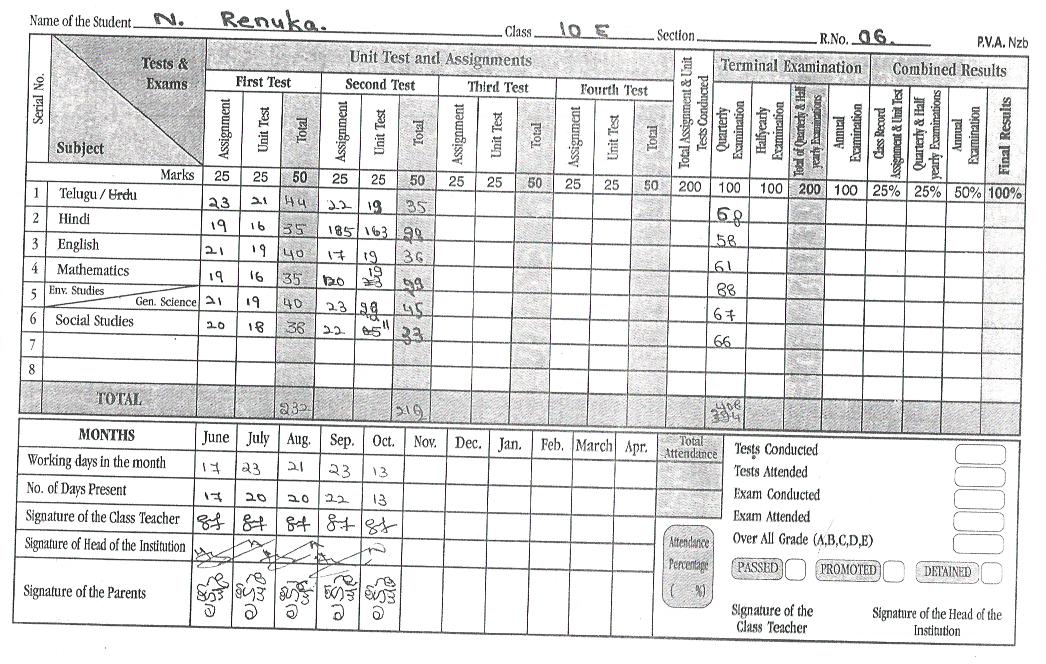 Name of the Student N. Renuka. Class 10 E Section R.No. 06. P.V.A. Nzb
Serial No. Tests & Exams Subject Unit Test and Assignments Total Assignment & Unit Tests Conducted Terminal Examination Combined Results
First Test Second Test Third Test Fourth Test
Assignment Unit Test Total Assignment Unit Test Total Assignment Unit Test Total Assignment Unit Test Total Quarterly Examination Halfyearly Examination Total of Quarterly & Half yearly Examinations Annual Examination Class Record Assignment & Unit Test Quarterly & Half yearly Examinations Annual Examination Final Results
Marks 25 25 50 25 25 50 25 25 50 25 25 50 200 100 100 200 100 25% 25% 50% 100%
1 Telugu / Urdu 23 21 44 22 35
2 Hindi 19 16 35 58
3 English 21 19 40 17 19 36 61
4 Mathematics 19 16 35 19 88
5 Env. Studies Gen. Science 21 19 40 23 45 67
6 Social Studies 20 18 38 22 11 33 66
7
8
TOTAL 232 219 394
MONTHS June July Aug. Sep. Oct. Nov. Dec. Jan. Feb. March Apr. Total Attendance
Working days in the month 17 23 21 23 13
No. of Days Present 17 20 20 22 13
Signature of the Class Teacher
Signature of Head of the Institution
Signature of the Parents
Attendance Percentage ( %)
Tests Conducted
Tests Attended
Exam Conducted
Exam Attended
Over All Grade (A,B,C,D,E)
PASSED PROMOTED DETAINED
Signature of the Class Teacher Signature of the Head of the Institution